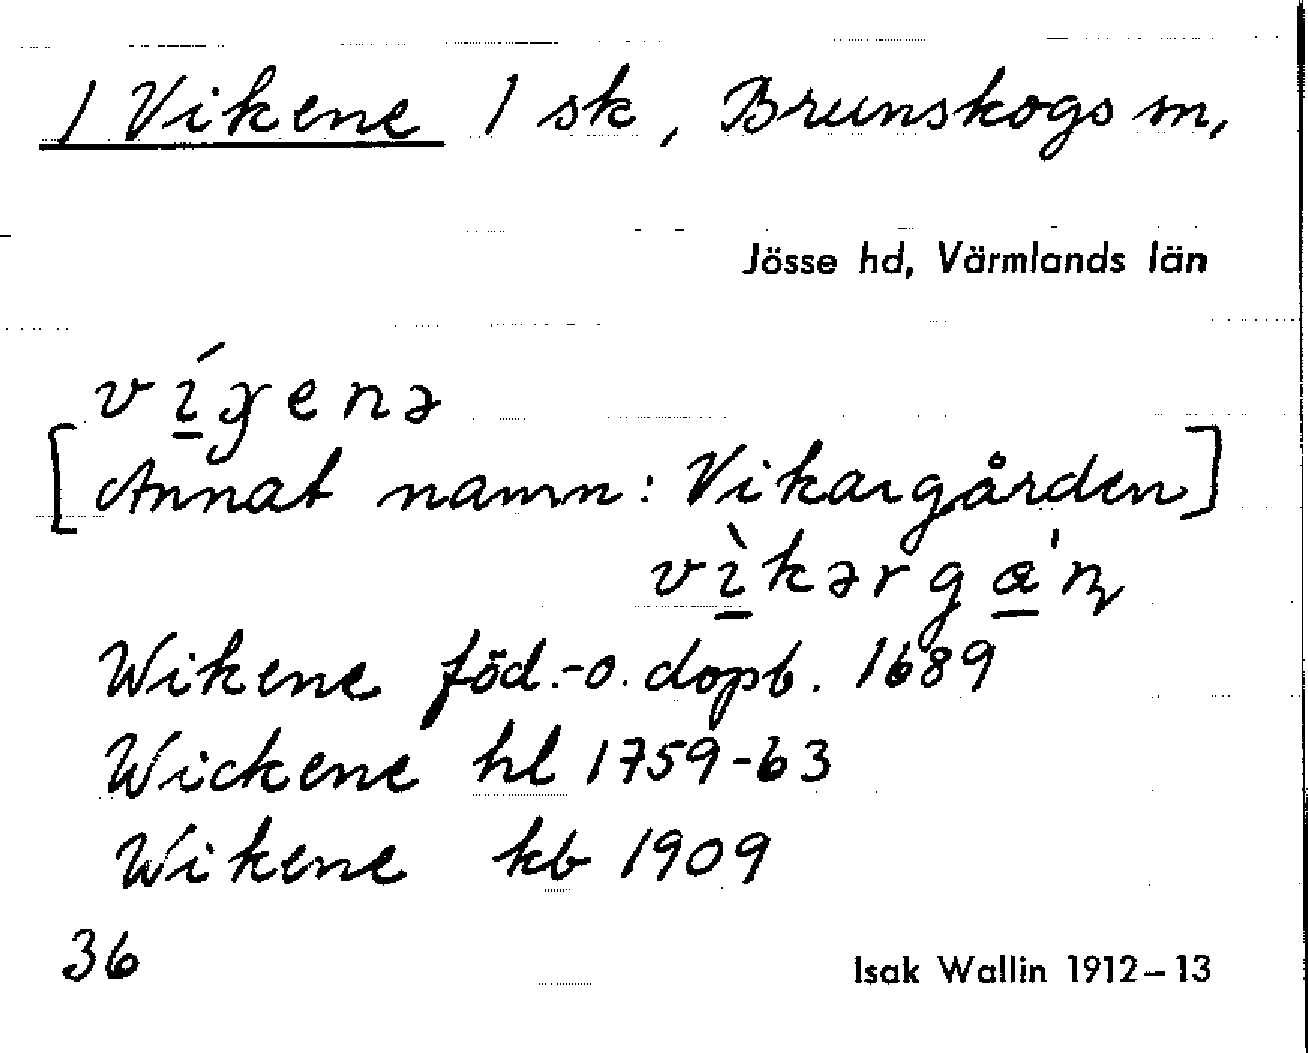 / Vikene / sk, Brunskogs sn,
Jösse hd, Värmlands län
ví̱gena
[Annat namn: Vikargården]
vì̱kərgæ̱'ɳ
Wikene föd.-o. dopb. 1689
Wickene hl 1759-63
Wikene kb 1909
36
Isak Wallin 1912–13